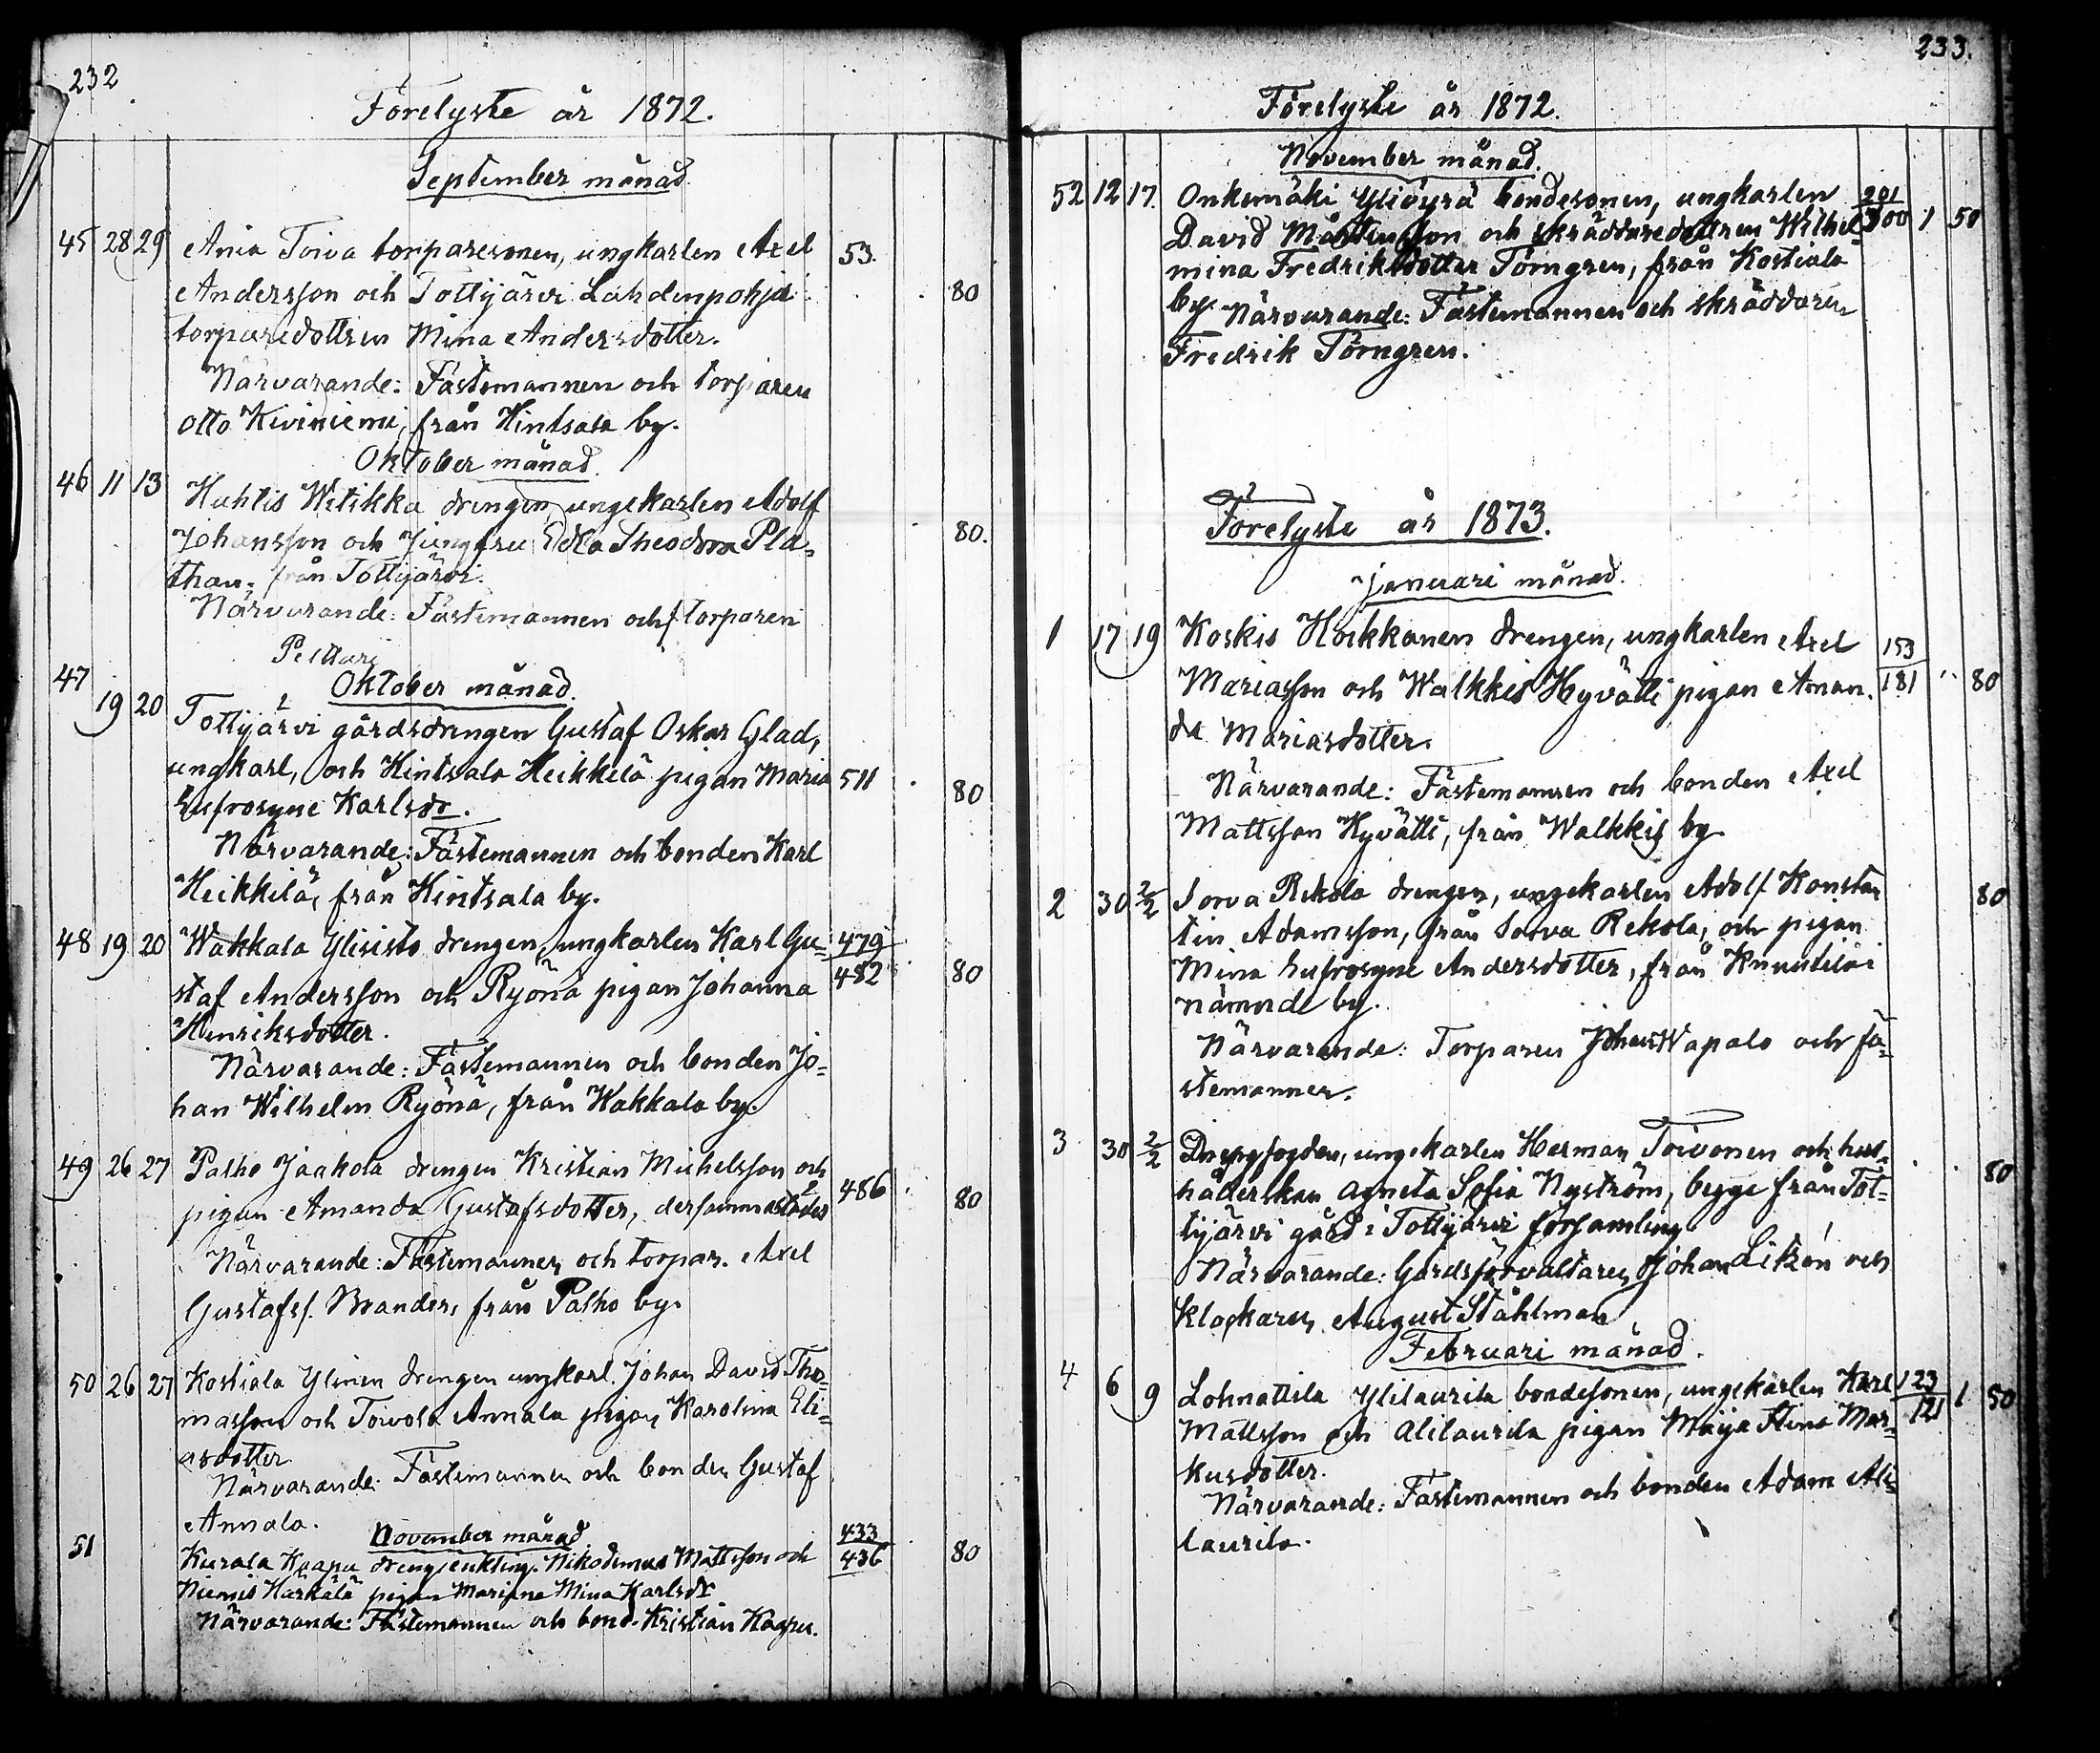 232
Förelyste år 1872.
September månad.
45 28 29 Ania Toiva torparesonen, ungkarlen Axel 53.
Andersson och Tottijärvi Lahdenpohja 80
torparedottren Mina Andersdotter.
Närvarande: Fästemannen och torparen
Otto Kiviniemi, från Hintsala by.
Oktober månad.
46 11 13 Huhtis Witikka drengen, ungekarlen Adolf
Johansson och Jungfru Edla Theodora Pla- 80.
than. från Tottijärvi.
Närvarande: Fästemannen och torparen
Pelttari
47 Oktober månad.
19 20 Tottijärvi gårdsdrengen Gustaf Oskar Glad,
ungkarl, och Hintsala Heikkilä pigan Maria 511 80
Eufrosyne Karlsdr.
Närvarande: Fästemannen och bonden Karl
Heikkilä, från Hintsala by.
48 19 20 Wakkala Ylisisto drengen, ungkarlen Karl Gu- 479
staf Andersson och Ryönä pigan Johanna 482 80
Henriksdotter.
Närvarande: Fästemannen och bonden Jo-
han Wilhelm Ryönä, från Wakkala by.
49 26 27 Palho Jaakola drengen Kristian Michelsson och
pigan Amanda Gustafsdotter, dersammastädes 486 80
Närvarande: Fästemannen och torpar. Axel
Gustafss. Brander, från Palho by.
50 26 27 Kostiala Ylinen drengen ungkarl. Johan David Tho-
masson och Toivola Annala pigan Karolina Eli-
asdotter
Närvarande: Fästemannen och bonden Gustaf
Annala.
November månad
51 Kurala Kaapu dreng, enkling. Nikodemus Mattsson och 433 436 80
Niemis Härkälä pigan Mariana Mina Karlsdr
Närvarande: Fästemannen och bond. Kristian Kaapu.
233.
Förelyste år 1872.
November månad.
52 12 17. Onkemäki Yliöyrä bondesonen, ungkarlen 201
David Mårtensson och skräddaredottren Wilhel- 300 1 50
mina Fredriksdotter Törngren, från Kostiala
by. Närvarande: Fästemannen och skräddaren
Fredrik Törngren.
Förelyste år 1873.
Januari månad.
1 17 19 Koskis Hoikkanen drengen, ungkarlen Axel 153
Mariasson och Walkkis Hyvätti pigan Aman- 181 80
da Mariasdotter.
Närvarande: Fästemannen och bonden Axel
Mattsson Hyvätti, från Walkkis by.
2 30 2/2 Sorva Rekola drengen, ungekarlen Adolf Konstan 80
tin Adamsson, från Sorva Rekola, och pigan
Mina Eufrosyne Andersdotter, från Knuutila i
nämnde by.
Närvarande: Torparen Johan Wapalo och fä-
stemannen.
3 30 2/2 Drengfogden, ungekarlen Herman Toivonen och hus-
hållerskan Agneta Sofia Nyström, begge från Tot- 80
tijärvi gård i Tottijärvi församling
Närvarande: Gårdsförvaltaren Johan Liken och
klockaren August Ståhlman
Februari månad.
4 6 9 Lohnattila Ylilaurila bondesonen, ungekarlen Karl 123
Mattsson och Alilaurila pigan Maija Stina Mar- 121 1 50
kusdotter.
Närvarande: Fästemannen och bonden Adam Ali-
laurila.